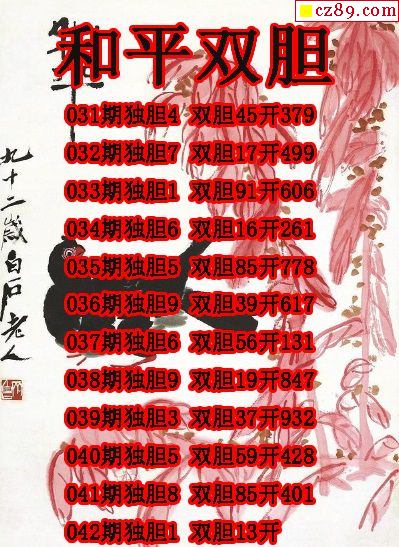 cz89.com
和平双胆
031期独胆4 双胆45开379
032期独胆7 双胆17开499
033期独胆1 双胆91开606
034期独胆6 双胆16开261
035期独胆5 双胆85开778
036期独胆9 双胆39开617
037期独胆6 双胆56开131
038期独胆9 双胆19开847
039期独胆3 双胆37开932
040期独胆5 双胆59开428
041期独胆8 双胆85开401
042期独胆1 双胆13开
九十二岁白石老人